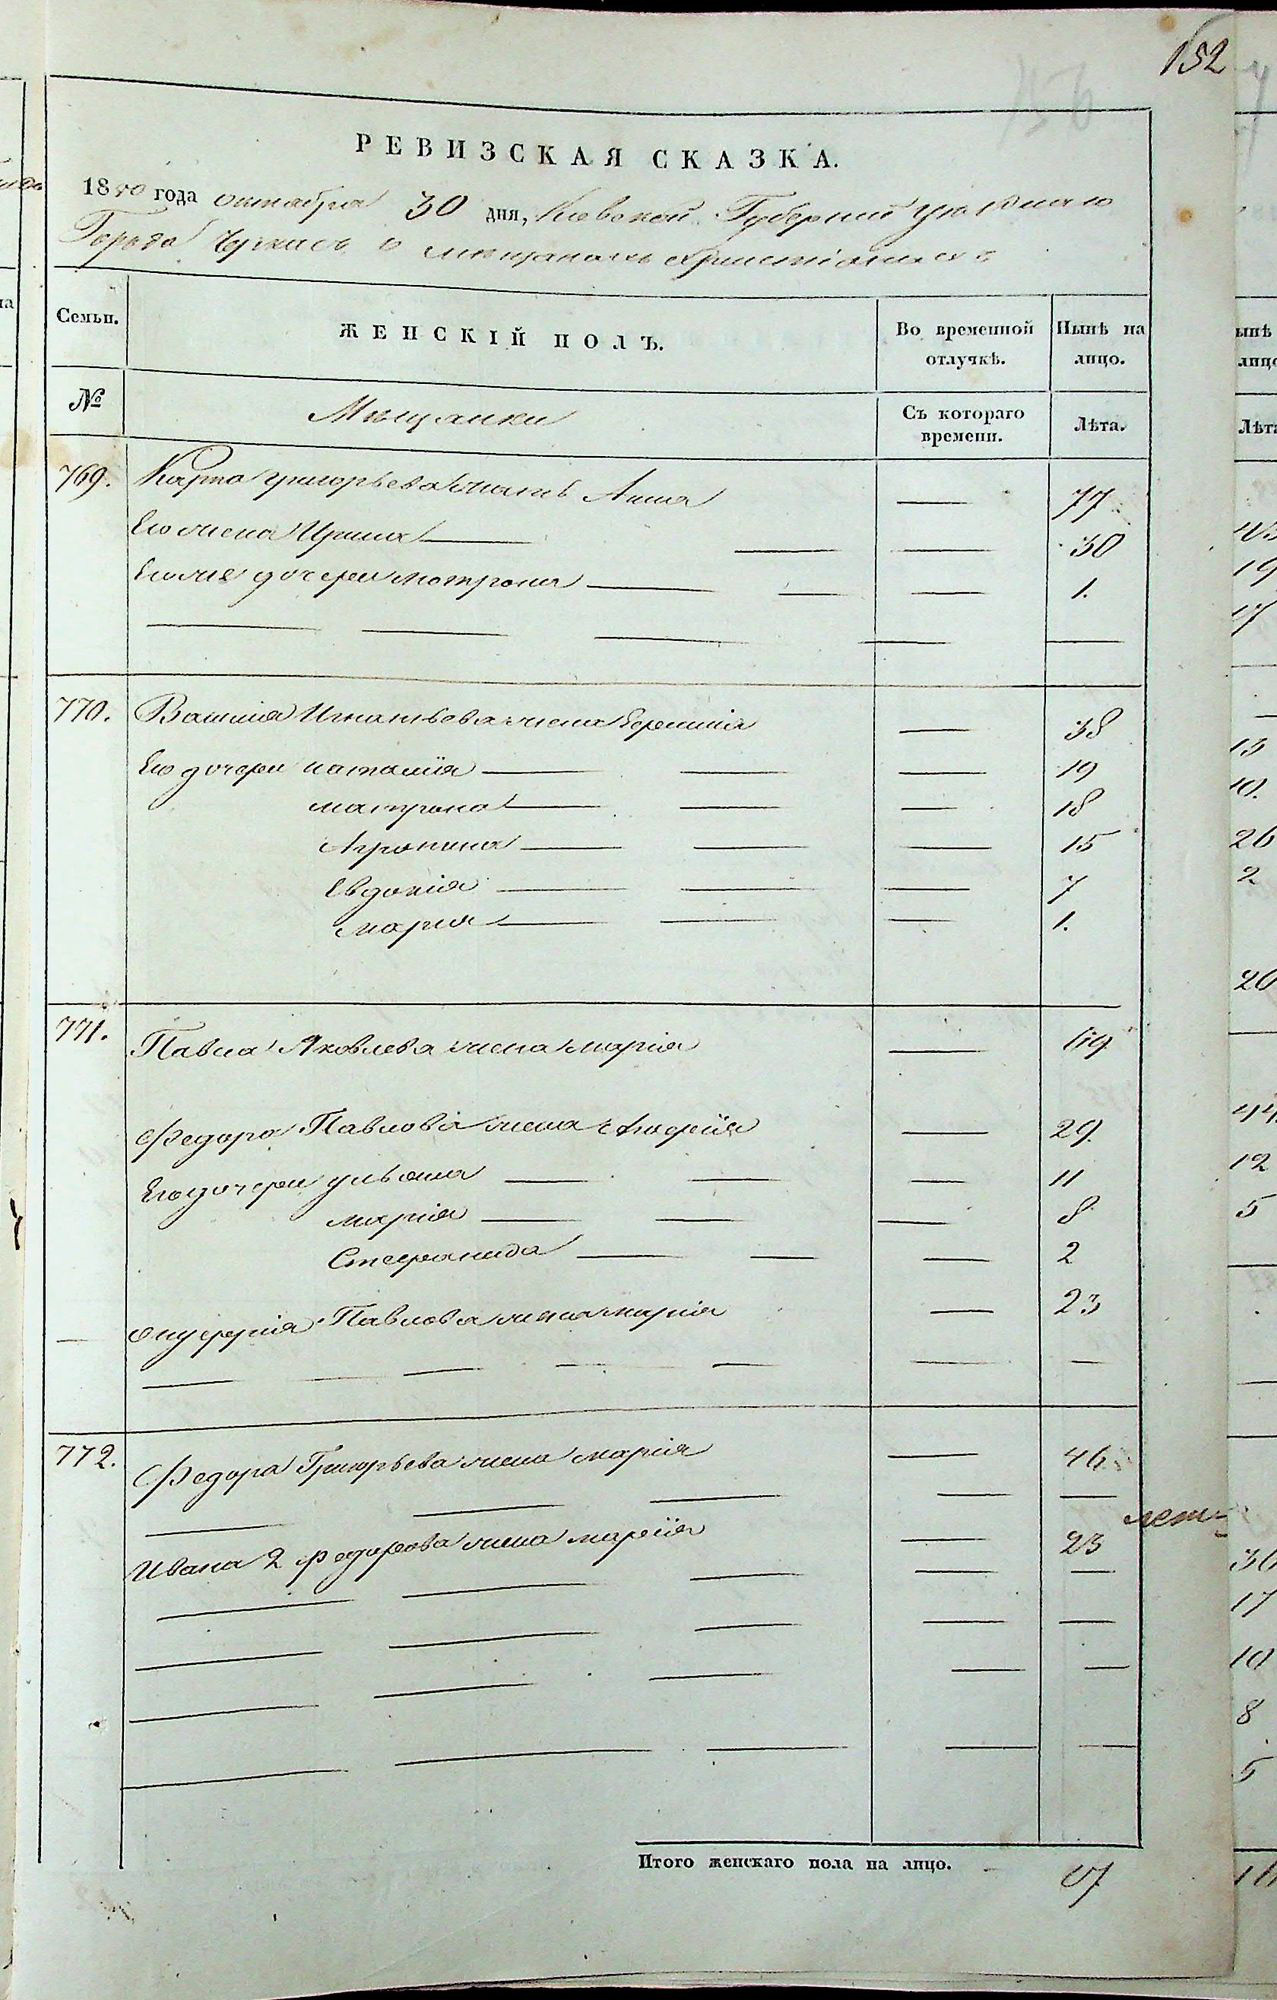 152
РЕВИЗСКАЯ СКАЗКА.
1850 года октября 30 дня, Киевской Губернии уѣзднаго
Города Черкасъ о мещанахъ христіянахъ
Семьи.
ЖЕНСКІЙ ПОЛЪ.
Во временной отлучкѣ.
Нынѣ на лицо.
№
Мещанки
Съ котораго времени.
Лѣта.
769. Карпа Григорьева мать Анна — 77
Его жена Ирина — 30
Его же дочери Мотрона — 1.
770. Жена — 38
Его дочери Наталія — 19
Матрона — 18
Агрипина — 15
Евдокія — 7
Мария — 1.
771. Павла Яковлева жена Марія — 49
Федора Павлова жена — 29
Его дочери Ульяна — 11
Марія — 8
Стефанида — 2
Онуфрія Павлова жена Марія — 23
772. Федора Григорьева жена Марія — 46
Ивана 2 Федорова жена Марія — 23
Итого женскаго пола на лицо. — 17